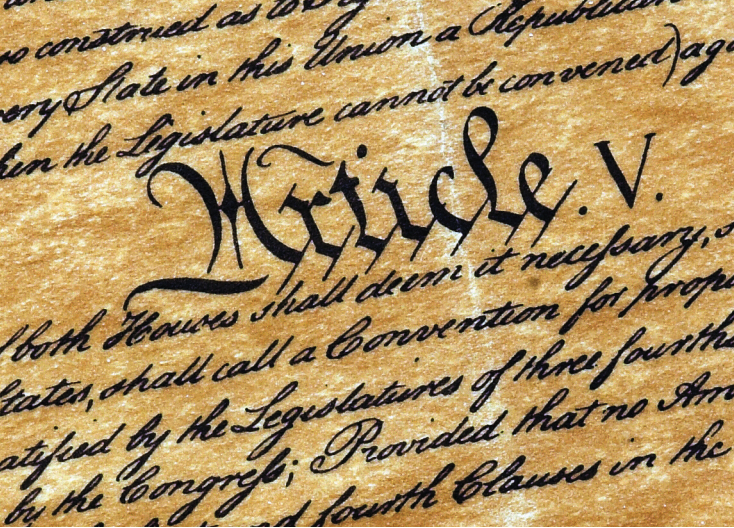 so construed as to
very State in this Union a Republican
hen the Legislature cannot be convened) aga
Article. V.
both Houses shall deem it necessary,
States, shall call a Convention for prop
atified by the Legislatures of three fourths
by the Congress; Provided that no Am
and fourth Clauses in the